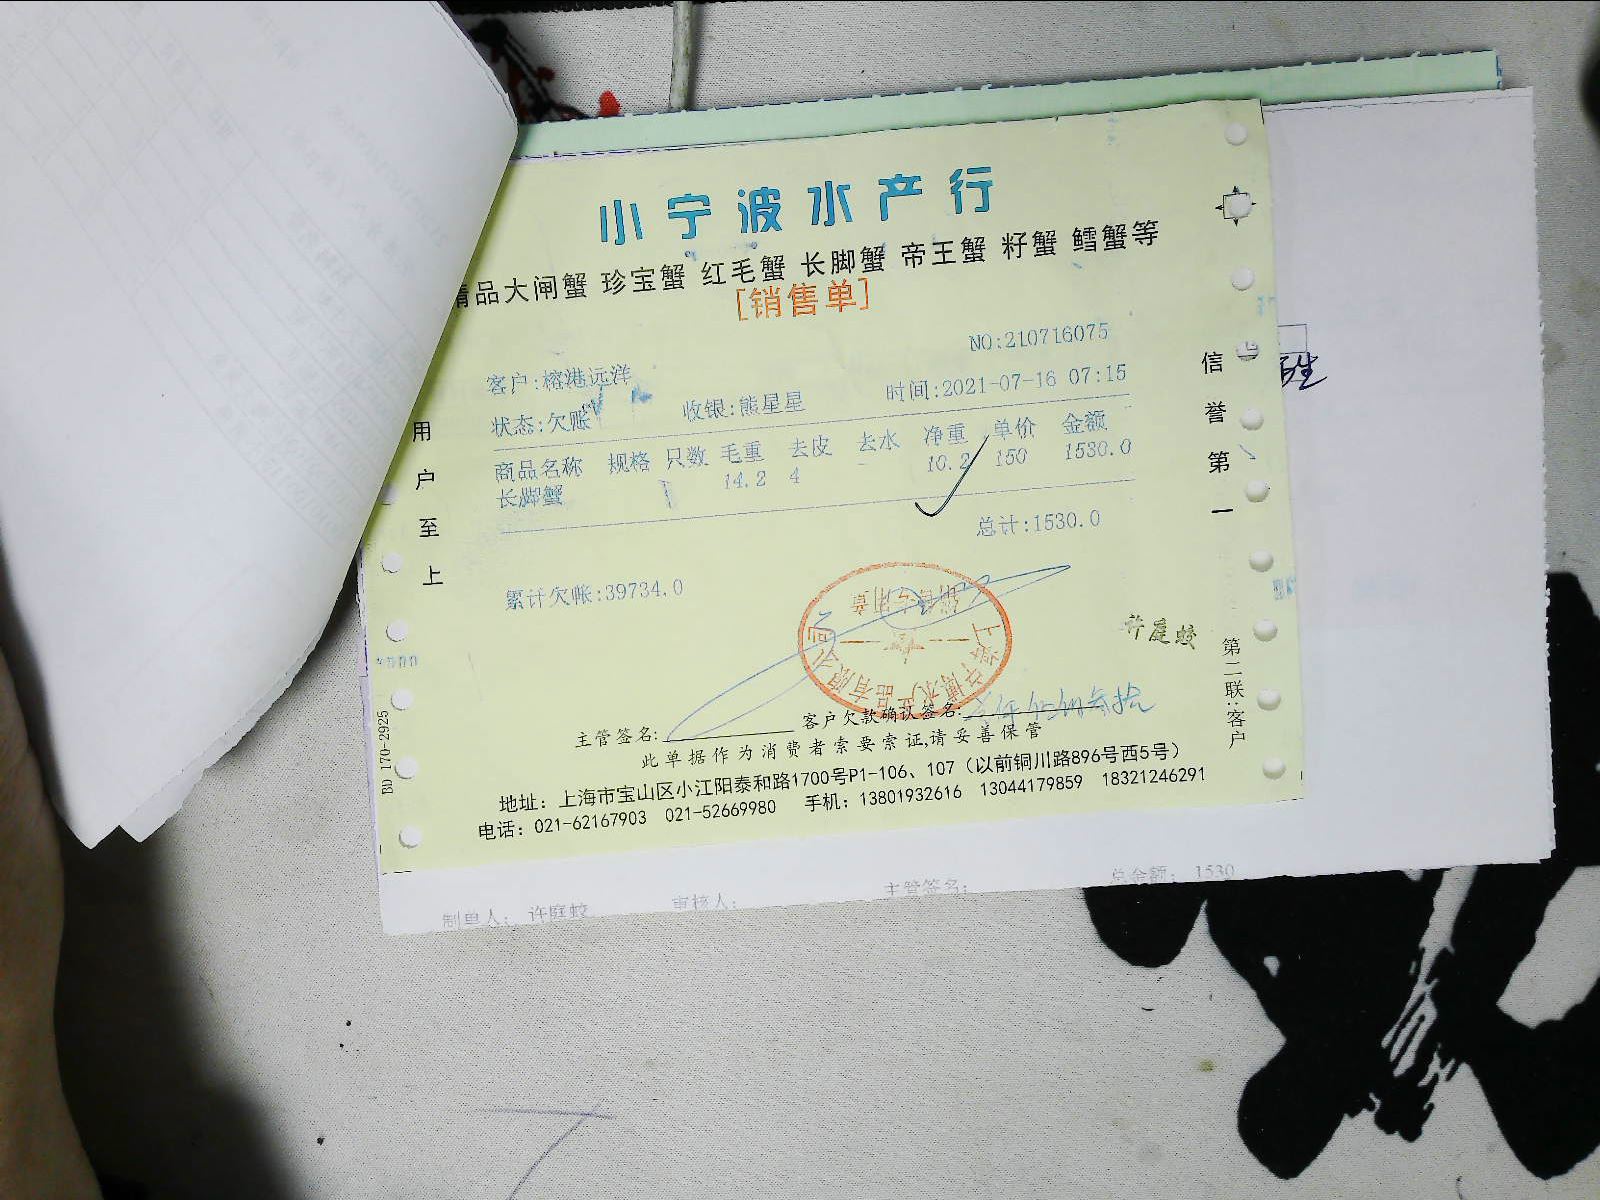 小宁波水产行
精品大闸蟹 珍宝蟹 红毛蟹 长脚蟹 帝王蟹 籽蟹 鳕蟹等
[销售单]
NO:210716075
客户:榕港远洋
状态:欠账 收银:熊星星 时间:2021-07-16 07:15
商品名称 规格 只数 毛重 去皮 去水 净重 单价 金额
长脚蟹 14.2 4 - 10.2 150 1530.0
总计:1530.0
累计欠帐:39734.0
用户至上
信誉第一
销售专用章
许庭蛟
第二联:客户
BD 170-2925
主管签名: 客户欠款确认签名:
此单据作为消费者索要索证,请妥善保管
地址：上海市宝山区小江阳泰和路1700号P1-106、107（以前铜川路896号西5号）
电话：021-62167903 021-52669980 手机：13801932616 13044179859 18321246291
制单人： 许庭蛟 审核人： 主管签名： 总金额： 1530